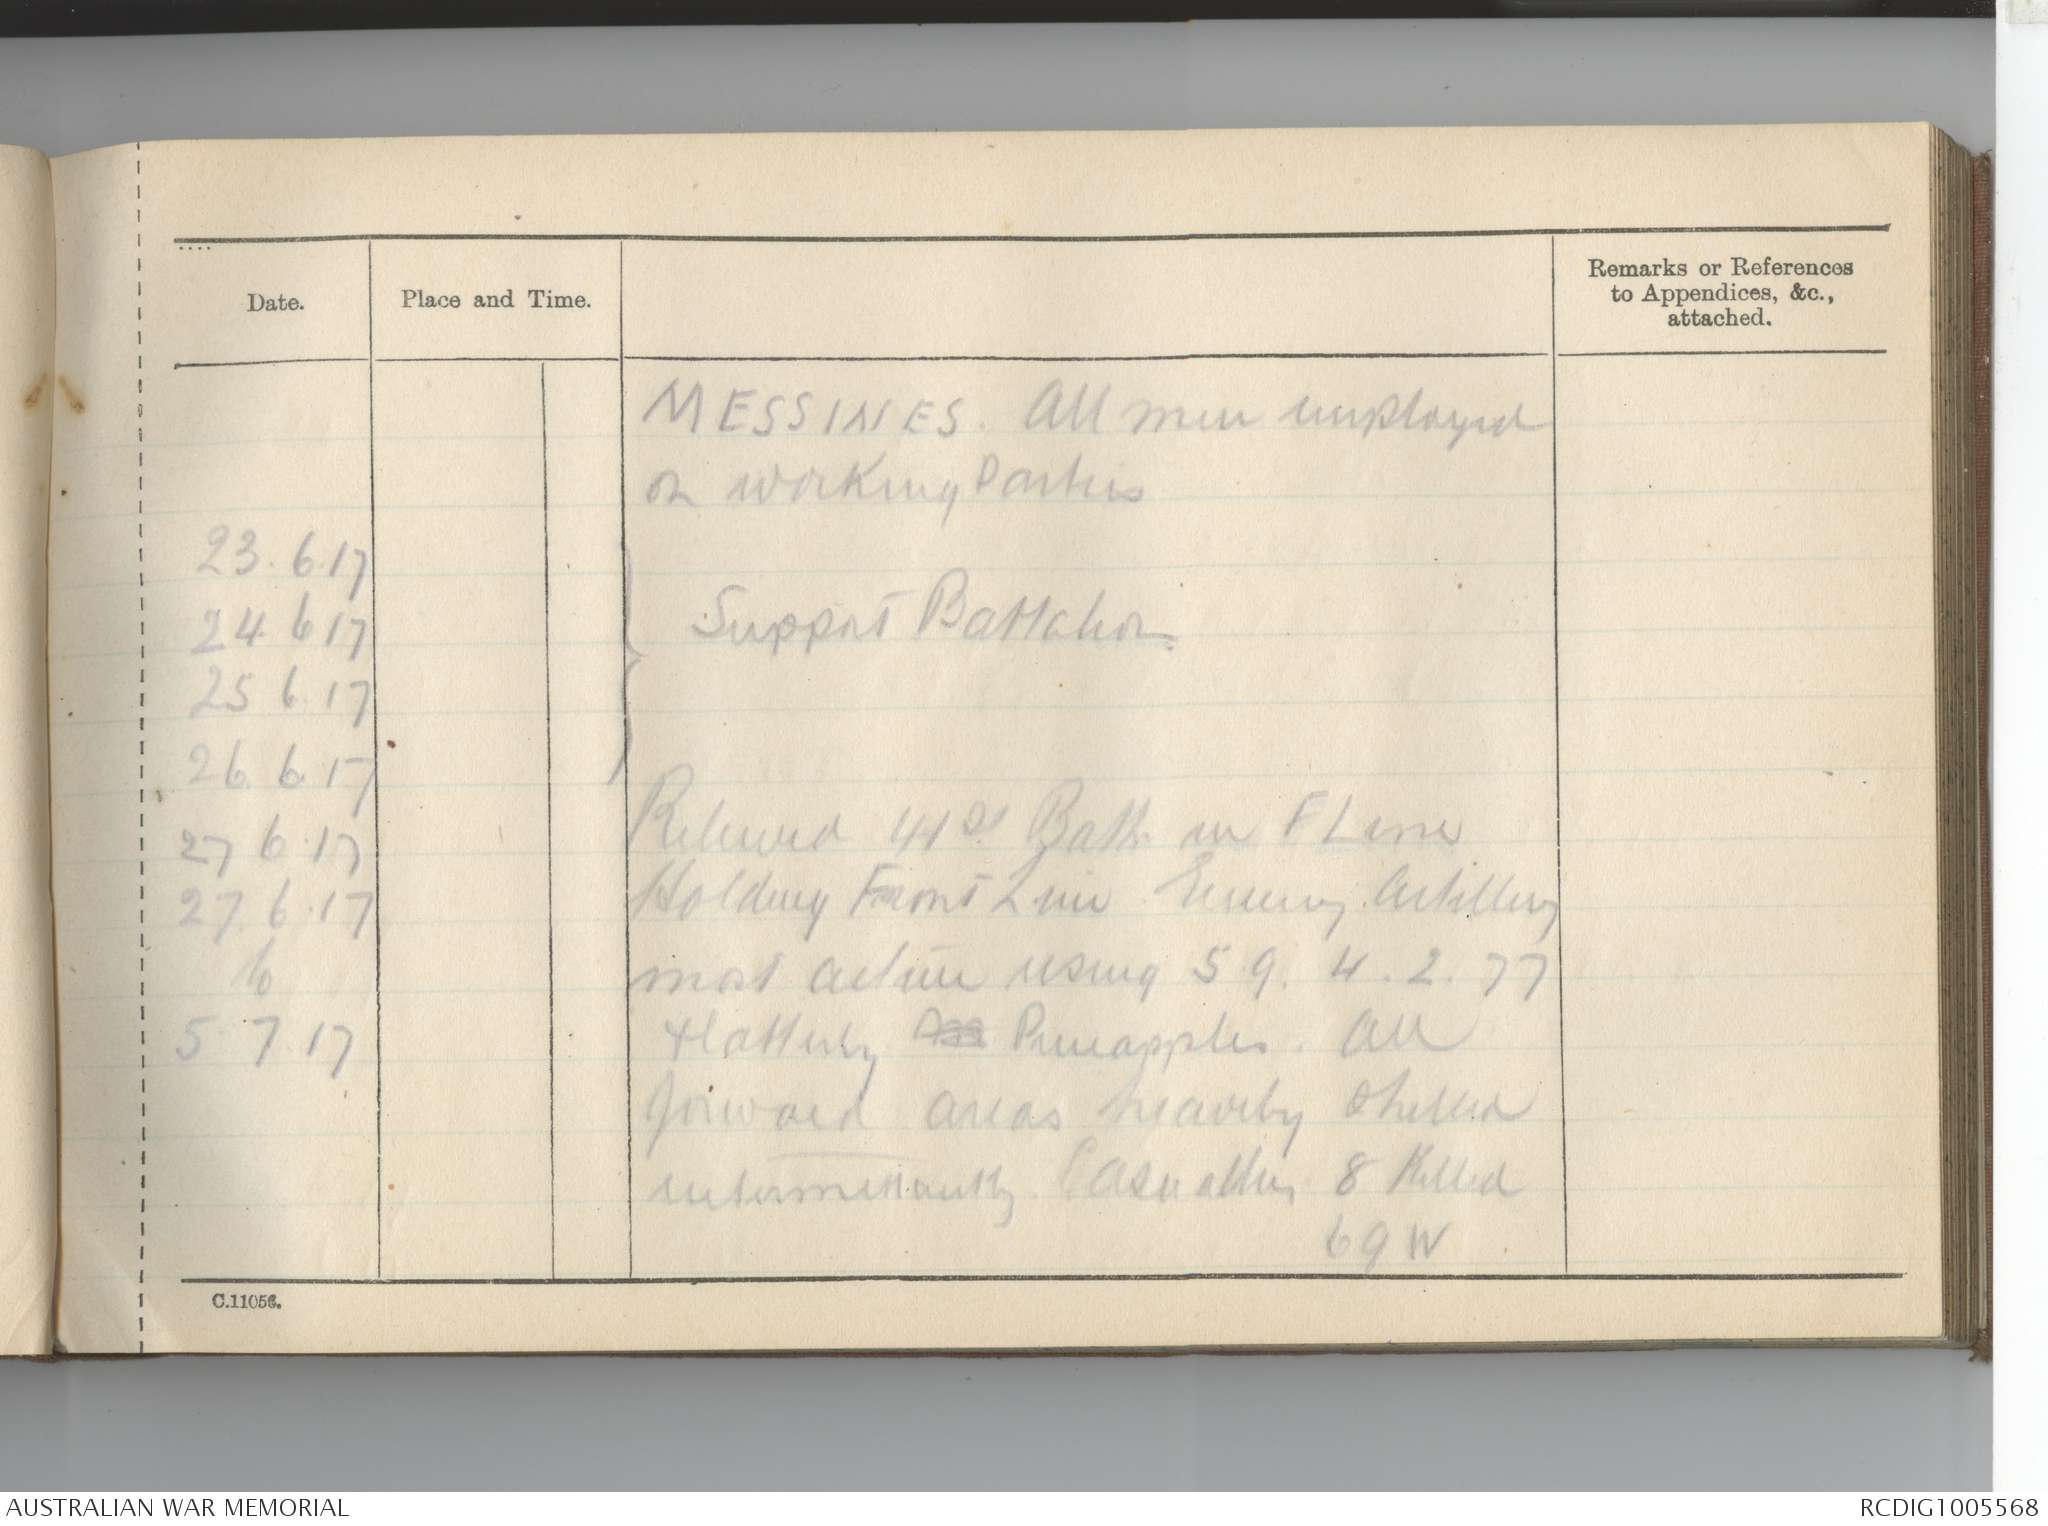 ....
Date.
Place and Time.
Remarks or References
to Appendices, &c.,
attached.
MESSINES. All men employed
on working Parties
23.6.17
24.6.17
Support Battalion.
25.6.17
26.6.17
27.6.17 Relieved 41st Batt. in F Line
27.6.17 Holding Front Line. Enemy Artillery
to most active using 5.9. 4.2. 77
5.7.17 Pineapples. All
forward areas heavily shelled
intermittantly. Casualties 8 Killed
69 W
C.11056.
AUSTRALIAN WAR MEMORIAL
RCDIG1005568